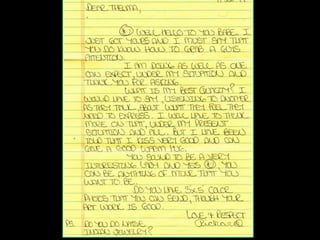 DEAR THELMA,
WELL, HELLO TO YOU BABE. I
JUST GOT YOURS AND I MUST SAY THAT
YOU DO KNOW HOW TO GRAB A GUYS
ATTENTION.
I AM DOING AS WELL AS ONE
CAN EXPECT, UNDER MY SITUATION AND
THANK YOU FOR ASKING.
WHAT IS MY BEST QUALITY? I
WOULD HAVE TO SAY, LISTENING TO ANOTHER
AS THEY TALK ABOUT WHAT THEY FEEL THEY
NEED TO EXPRESS. I WILL HAVE TO THINK
MORE ON THAT, UNDER MY PRESENT
SITUATION AND ALL. BUT I HAVE BEEN
TOLD THAT I KISS VERY GOOD AND CAN
GIVE A GOOD WARM HUG.
YOU SOUND TO BE A VERY
INTERESTING LADY AND YES, YOU
CAN BE ANYTHING OF MINE THAT YOU
WANT TO BE.
DO YOU HAVE 3x5" COLOR
PHOTOS THAT YOU CAN SEND, THOUGH YOUR
ART WORK IS GOOD.
LOVE & RESPECT
PS. DO YOU DO NATIVE
INDIAN JEWELRY?